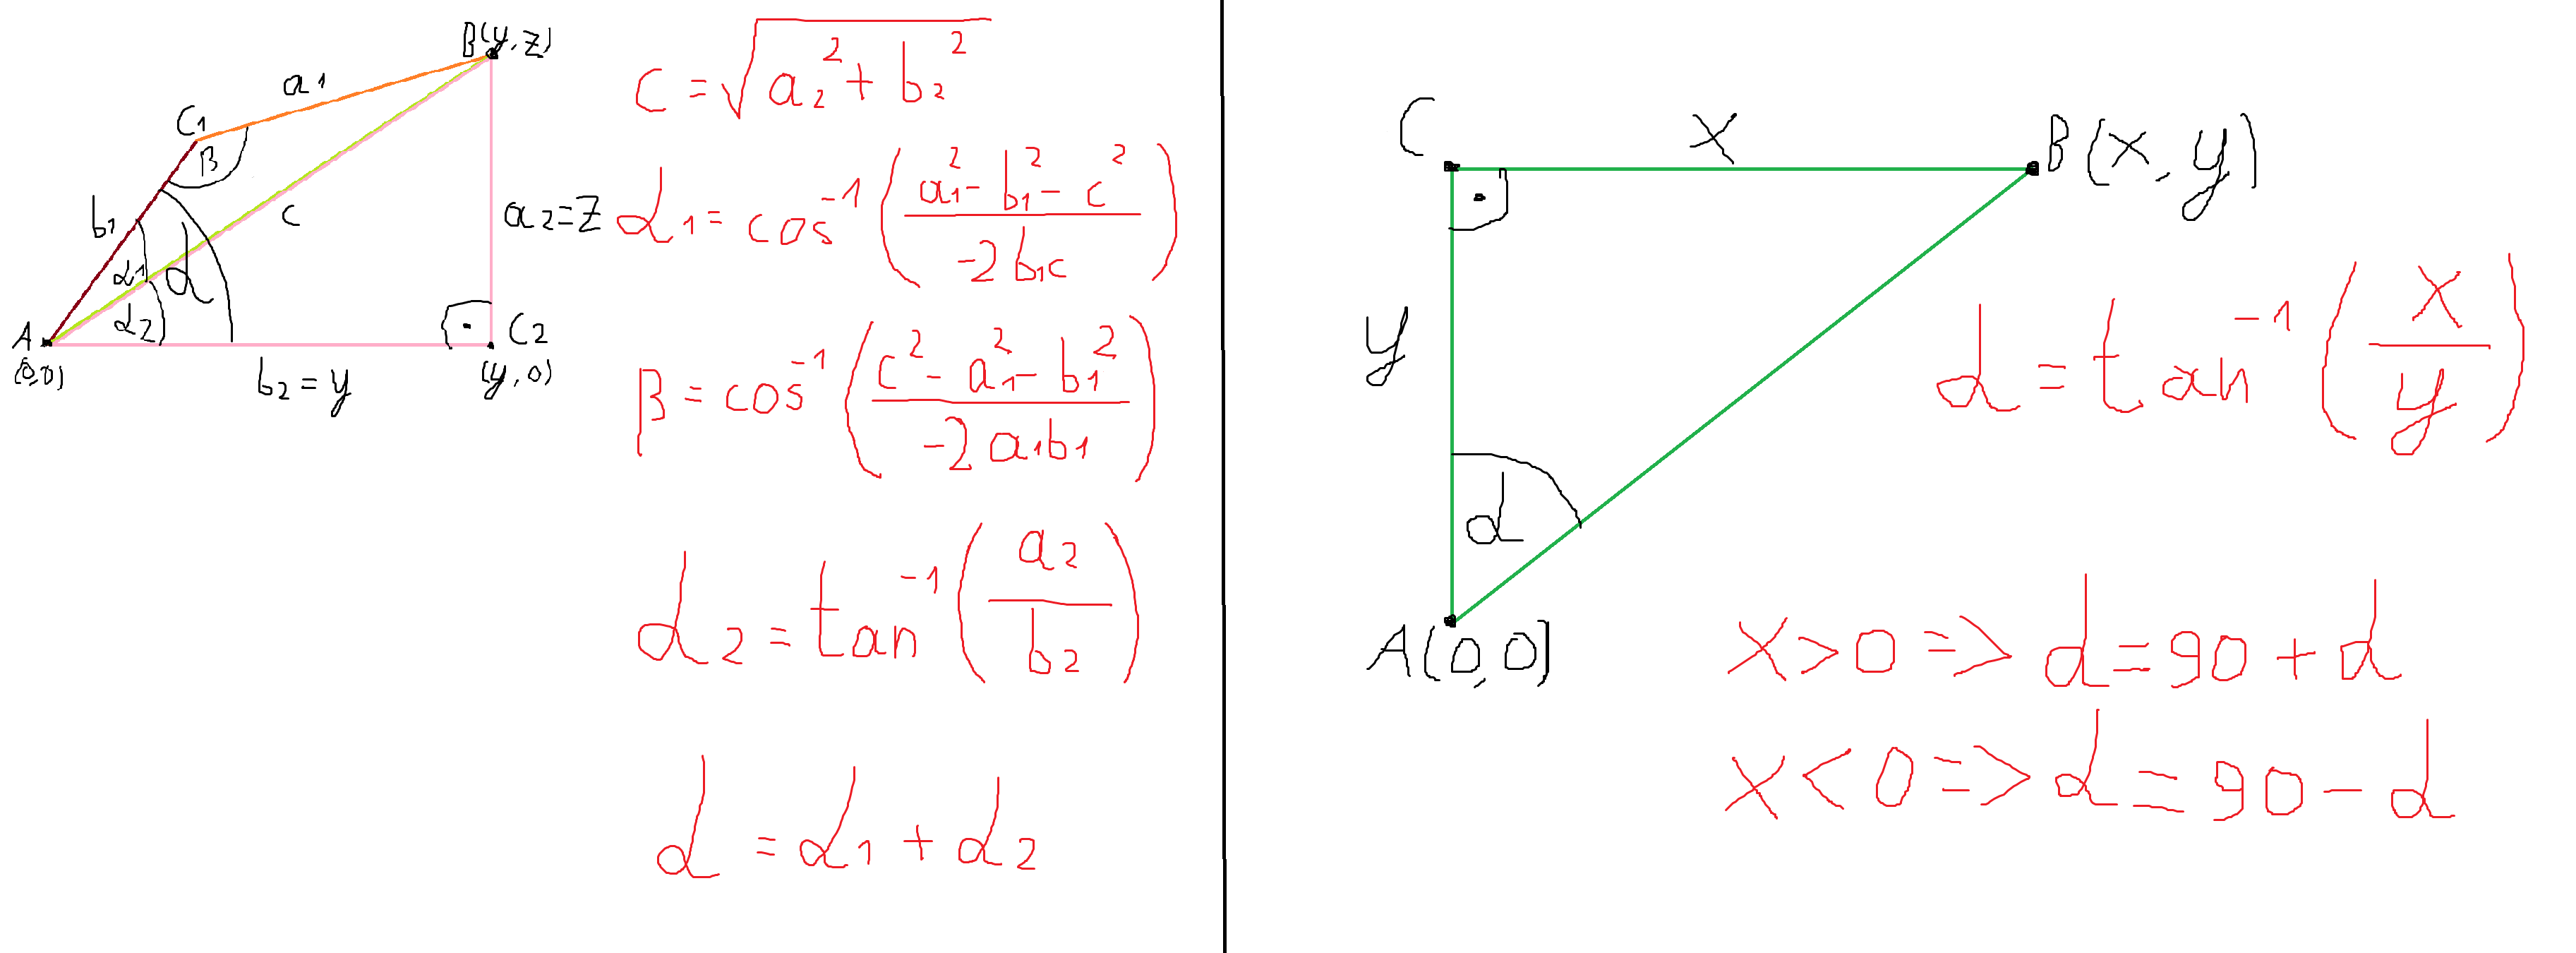 B(y,z)
a1
C1
β
b1
c
a2=z
α1
α
α2
A
(0,0)
C2
(y,0)
b2=y
c=√(a2²+b2²)
α1=cos⁻¹((a1²-b1²-c²)/(-2b1c))
β=cos⁻¹((c²-a1²-b1²)/(-2a1b1))
α2=tan⁻¹(a2/b2)
α=α1+α2
C
x
B(x,y)
y
α
A(0,0)
α=tan⁻¹(x/y)
x>0=>α=90+α
x<0=>α=90-α